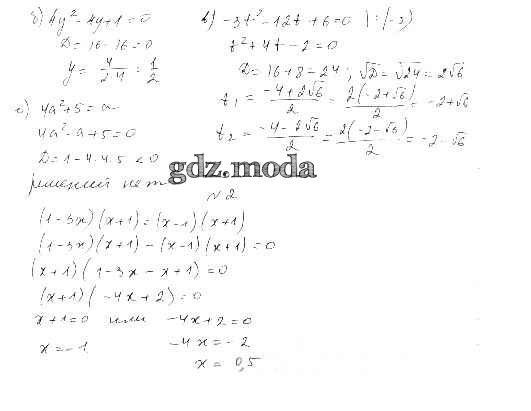 б) 4y² - 4y + 1 = 0
D = 16 - 16 = 0
y = 4/2·4 = 1/2
в) -3t² - 12t + 6 = 0 | :(-3)
t² + 4t - 2 = 0
D = 16 + 8 = 24; √D = √24 = 2√6
t₁ = (-4 + 2√6)/2 = 2(-2 + √6)/2 = -2 + √6
t₂ = (-4 - 2√6)/2 = 2(-2 - √6)/2 = -2 - √6
г) 4a² + 5 = a
4a² - a + 5 = 0
D = 1 - 4·4·5 < 0
решений нет
gdz.moda
№2
(1 - 3x)(x + 1) = (x - 1)(x + 1)
(1 - 3x)(x + 1) - (x - 1)(x + 1) = 0
(x + 1)(1 - 3x - x + 1) = 0
(x + 1)(-4x + 2) = 0
x + 1 = 0 или -4x + 2 = 0
x = -1 -4x = -2
x = 0,5